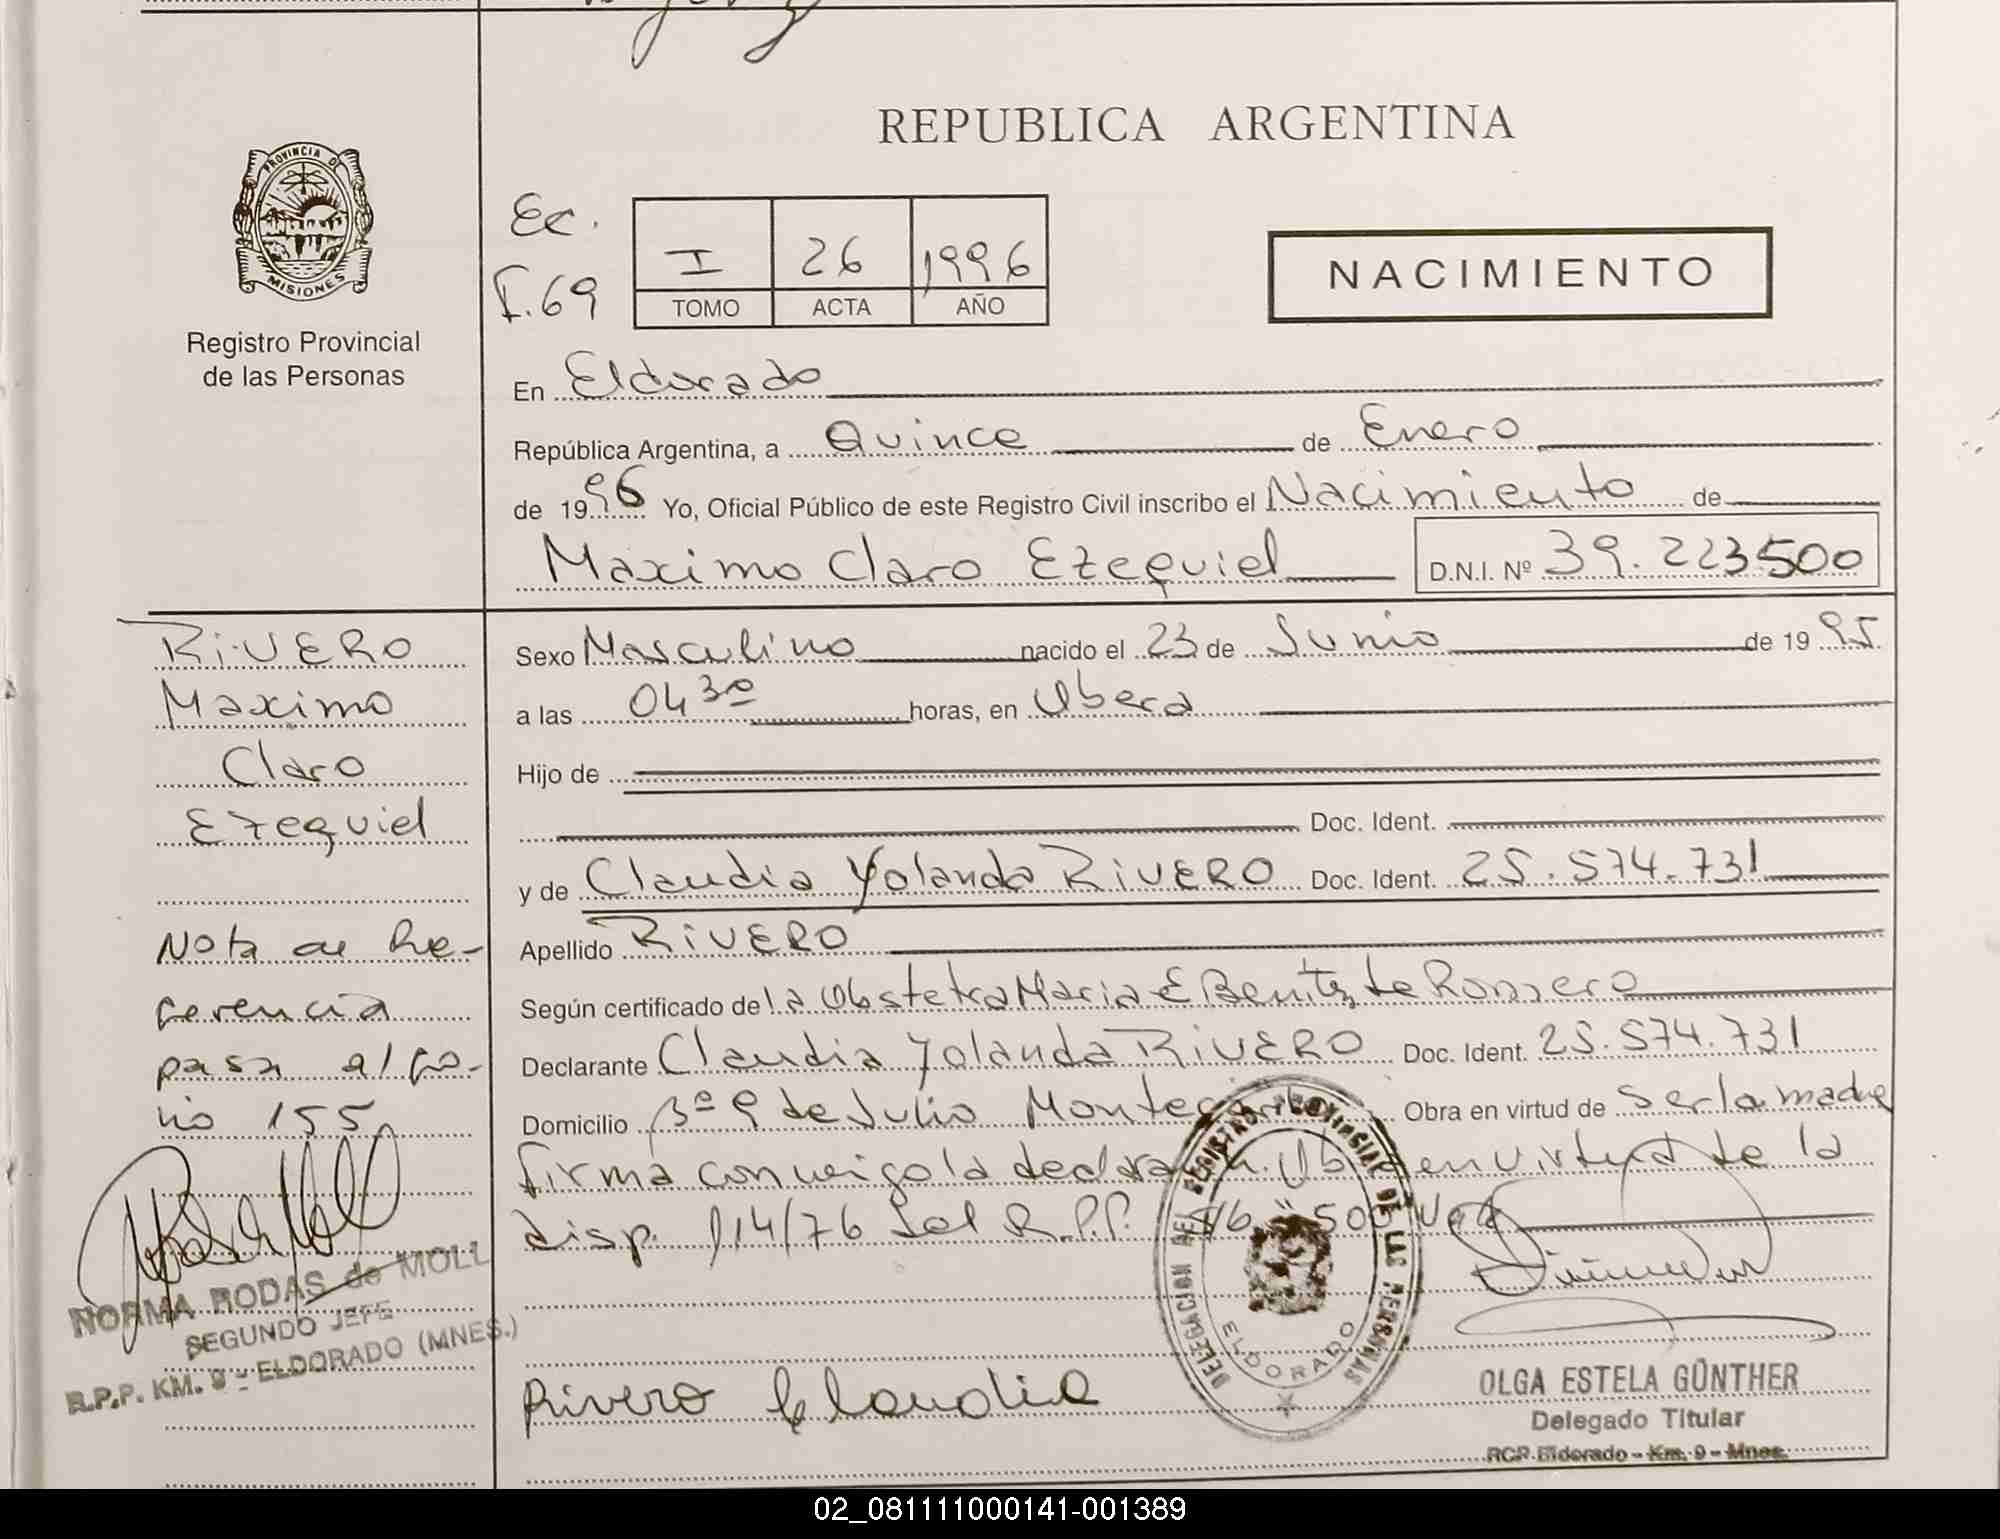 REPUBLICA ARGENTINA
PROVINCIA DE
MISIONES
Registro Provincial
de las Personas
Ec.
F.69
I 26 1996
TOMO ACTA AÑO
NACIMIENTO
En Eldorado
República Argentina, a Quince de Enero
de 1996 Yo, Oficial Público de este Registro Civil inscribo el Nacimiento de
Maximo Claro Ezequiel D.N.I. Nº 39.223500
RIVERO
Maximo
Claro
Ezequiel
Nota de Re-
ferencia
pasa al fo-
lio 155
NORMA RODAS de MOLL
SEGUNDO JEFE
R.P.P. KM. 9 - ELDORADO (MNES.)
Sexo Masculino nacido el 23 de Junio de 1995
a las 04 30 horas, en Obera
Hijo de
Doc. Ident.
y de Claudia Yolanda RIVERO Doc. Ident. 25.574.731
Apellido RIVERO
Según certificado de la Obstetra Maria E Benitez de Romero
Declarante Claudia Yolanda RIVERO Doc. Ident. 25.574.731
Domicilio Bº 9 de Julio Montecarlo Obra en virtud de ser la madre
firma conmigo la declarante. en virtud de la
disp. 114/76 del R.P.P.
DELEGACION DEL REGISTRO PROVINCIAL DE LAS PERSONAS
ELDORADO
Rivero Claudia
OLGA ESTELA GÜNTHER
Delegado Titular
RCP Eldorado - Km. 9 - Mnes.
02_081111000141-001389